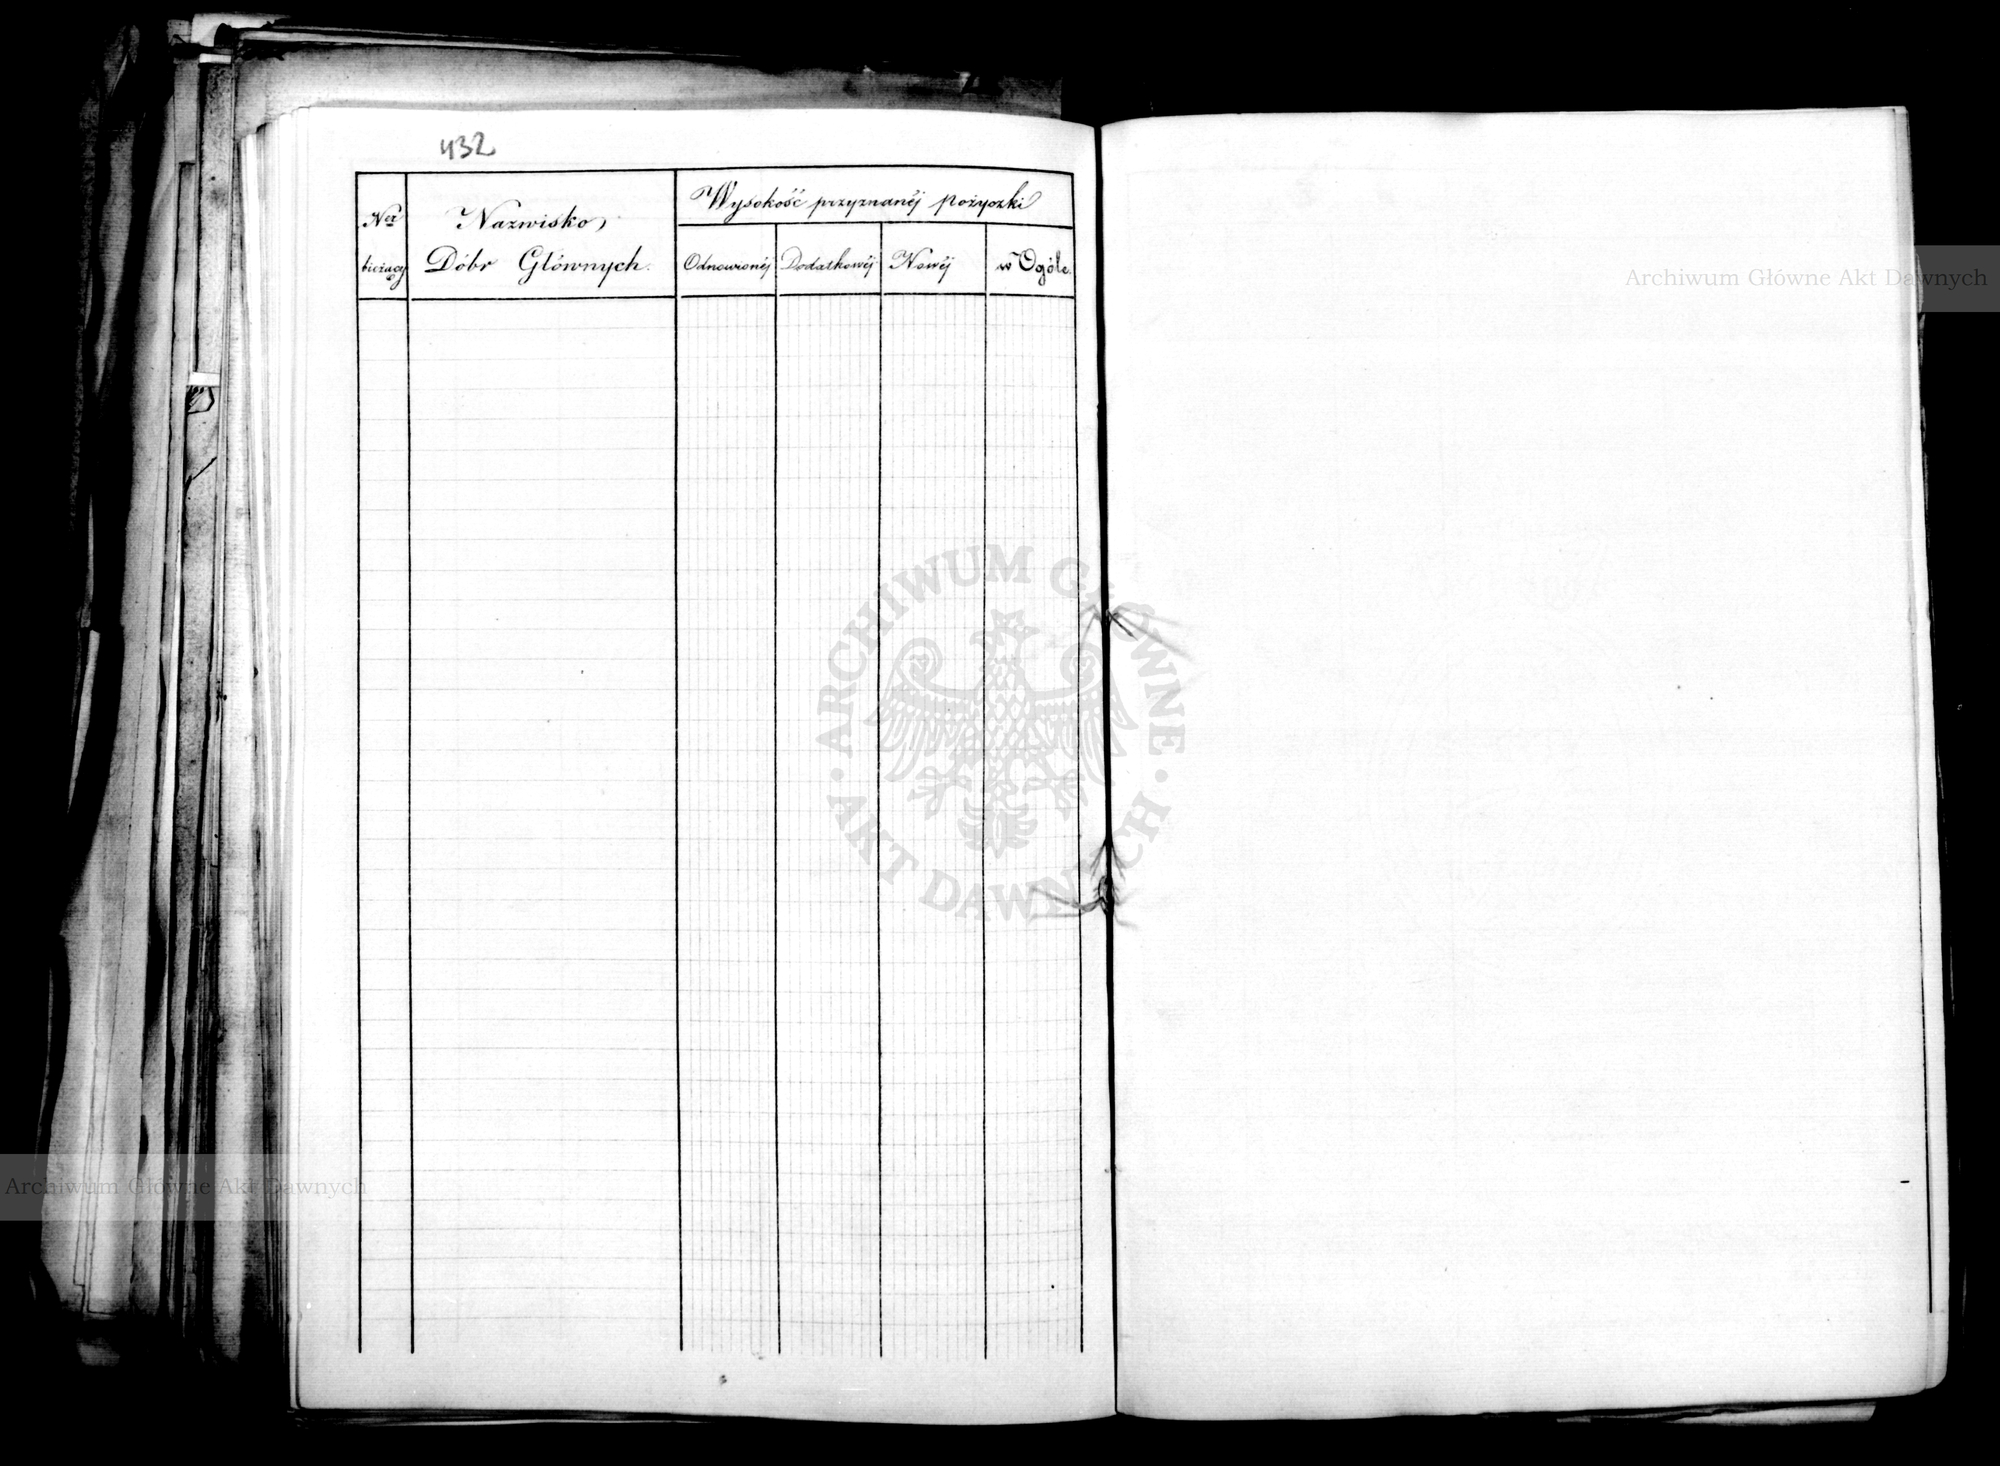 432
Ner bieżący
Nazwisko
Dóbr Głównych.
Wysokość przyznanéj pożyczki
Odnowionéj
Dodatkowéj
Nowéj
w Ogóle.
Archiwum Główne Akt Dawnych
ARCHIWUM GŁÓWNE
AKT DAWNYCH
Archiwum Główne Akt Dawnych